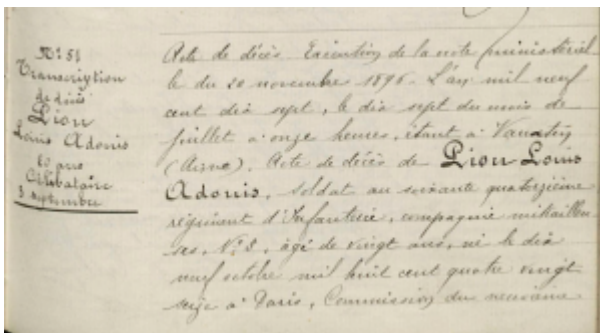 N° 51
Transcription
de décès
Lion
Louis Adonis
20 ans
Célibataire
3 septembre
Acte de décès. Exécution de la note ministériel-
le du 20 novembre 1896. L'an mil neuf
cent dix sept, le dix sept du mois de
juillet à onze heures, étant à
(Aisne). Acte de décès de Lion Louis
Adonis, soldat au soixante quatorzième
régiment d'Infanterie, compagnie mitrailleu-
ses, N° 3, âgé de vingt ans, né le dix
neuf octobre mil huit cent quatre vingt
seize à Paris, Commission du neuvième